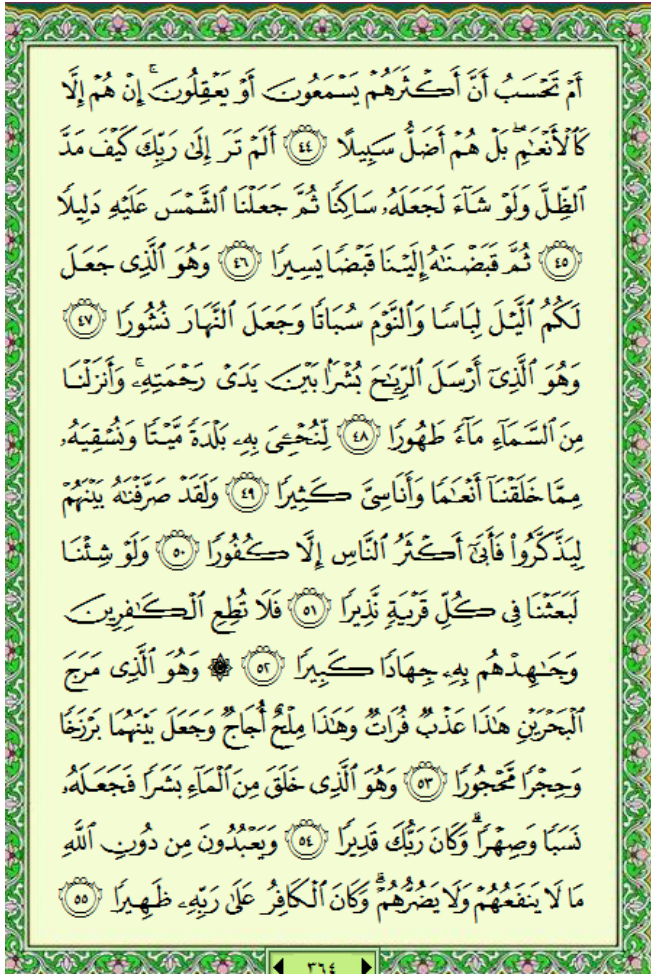 أَمْ تَحْسَبُ أَنَّ أَكْثَرَهُمْ يَسْمَعُونَ أَوْ يَعْقِلُونَ ۚ إِنْ هُمْ إِلَّا
كَٱلْأَنْعَٰمِ ۖ بَلْ هُمْ أَضَلُّ سَبِيلًا ﴿٤٤﴾ أَلَمْ تَرَ إِلَىٰ رَبِّكَ كَيْفَ مَدَّ
ٱلظِّلَّ وَلَوْ شَآءَ لَجَعَلَهُۥ سَاكِنًا ثُمَّ جَعَلْنَا ٱلشَّمْسَ عَلَيْهِ دَلِيلًا
﴿٤٥﴾ ثُمَّ قَبَضْنَٰهُ إِلَيْنَا قَبْضًا يَسِيرًا ﴿٤٦﴾ وَهُوَ ٱلَّذِى جَعَلَ
لَكُمُ ٱلَّيْلَ لِبَاسًا وَٱلنَّوْمَ سُبَاتًا وَجَعَلَ ٱلنَّهَارَ نُشُورًا ﴿٤٧﴾
وَهُوَ ٱلَّذِىٓ أَرْسَلَ ٱلرِّيَٰحَ بُشْرًۢا بَيْنَ يَدَىْ رَحْمَتِهِۦ ۚ وَأَنزَلْنَا
مِنَ ٱلسَّمَآءِ مَآءً طَهُورًا ﴿٤٨﴾ لِّنُحْۦِىَ بِهِۦ بَلْدَةً مَّيْتًا وَنُسْقِيَهُۥ
مِمَّا خَلَقْنَآ أَنْعَٰمًا وَأَنَاسِىَّ كَثِيرًا ﴿٤٩﴾ وَلَقَدْ صَرَّفْنَٰهُ بَيْنَهُمْ
لِيَذَّكَّرُوا۟ فَأَبَىٰٓ أَكْثَرُ ٱلنَّاسِ إِلَّا كُفُورًا ﴿٥٠﴾ وَلَوْ شِئْنَا
لَبَعَثْنَا فِى كُلِّ قَرْيَةٍ نَّذِيرًا ﴿٥١﴾ فَلَا تُطِعِ ٱلْكَٰفِرِينَ
وَجَٰهِدْهُم بِهِۦ جِهَادًا كَبِيرًا ﴿٥٢﴾ ۞ وَهُوَ ٱلَّذِى مَرَجَ
ٱلْبَحْرَيْنِ هَٰذَا عَذْبٌ فُرَاتٌ وَهَٰذَا مِلْحٌ أُجَاجٌ وَجَعَلَ بَيْنَهُمَا بَرْزَخًا
وَحِجْرًا مَّحْجُورًا ﴿٥٣﴾ وَهُوَ ٱلَّذِى خَلَقَ مِنَ ٱلْمَآءِ بَشَرًا فَجَعَلَهُۥ
نَسَبًا وَصِهْرًا ۗ وَكَانَ رَبُّكَ قَدِيرًا ﴿٥٤﴾ وَيَعْبُدُونَ مِن دُونِ ٱللَّهِ
مَا لَا يَنفَعُهُمْ وَلَا يَضُرُّهُمْ ۗ وَكَانَ ٱلْكَافِرُ عَلَىٰ رَبِّهِۦ ظَهِيرًا ﴿٥٥﴾
٣٦٤